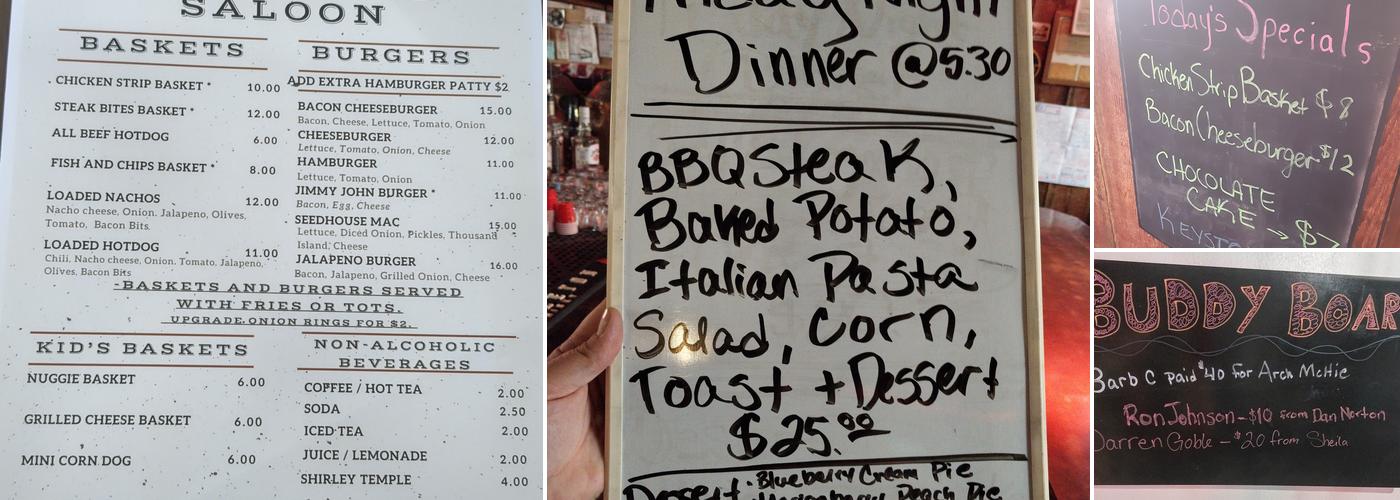 SALOON
BASKETS
CHICKEN STRIP BASKET * 10.00
STEAK BITES BASKET * 12.00
ALL BEEF HOTDOG 6.00
FISH AND CHIPS BASKET * 8.00
LOADED NACHOS 12.00
Nacho cheese, Onion. Jalapeno, Olives,
Tomato, Bacon Bits.
LOADED HOTDOG 11.00
Chili, Nacho cheese, Onion. Tomato, Jalapeno,
Olives, Bacon Bits
BURGERS
ADD EXTRA HAMBURGER PATTY $2
BACON CHEESEBURGER 15.00
Bacon, Cheese, Lettuce, Tomato, Onion
CHEESEBURGER 12.00
Lettuce, Tomato, Onion, Cheese
HAMBURGER 11.00
Lettuce, Tomato, Onion
JIMMY JOHN BURGER * 11.00
Bacon, Egg, Cheese
SEEDHOUSE MAC 15.00
Lettuce, Diced Onion, Pickles, Thousand
Island, Cheese
JALAPENO BURGER 16.00
Bacon, Jalapeno, Grilled Onion, Cheese
-BASKETS AND BURGERS SERVED
WITH FRIES OR TOTS.
UPGRADE ONION RINGS FOR $2.
KID'S BASKETS
NUGGIE BASKET 6.00
GRILLED CHEESE BASKET 6.00
MINI CORN DOG 6.00
NON-ALCOHOLIC
BEVERAGES
COFFEE / HOT TEA 2.00
SODA 2.50
ICED TEA 2.00
JUICE / LEMONADE 2.00
SHIRLEY TEMPLE 4.00
Night
Dinner @5.30
BBQ Steak,
Baked Potato,
Italian Pasta
Salad, Corn,
Toast + Dessert
$25.00
Dessert · Blueberry Cream Pie
Peach Pie
Today's Specials
Chicken Strip Basket $8
Bacon Cheeseburger $12
CHOCOLATE
CAKE → $7
KEYSTO
BUDDY BOAR
Barb C paid $40 for Arch McHie
Ron Johnson - $10 from Dan Norton
Darren Goble - $20 from Sheila